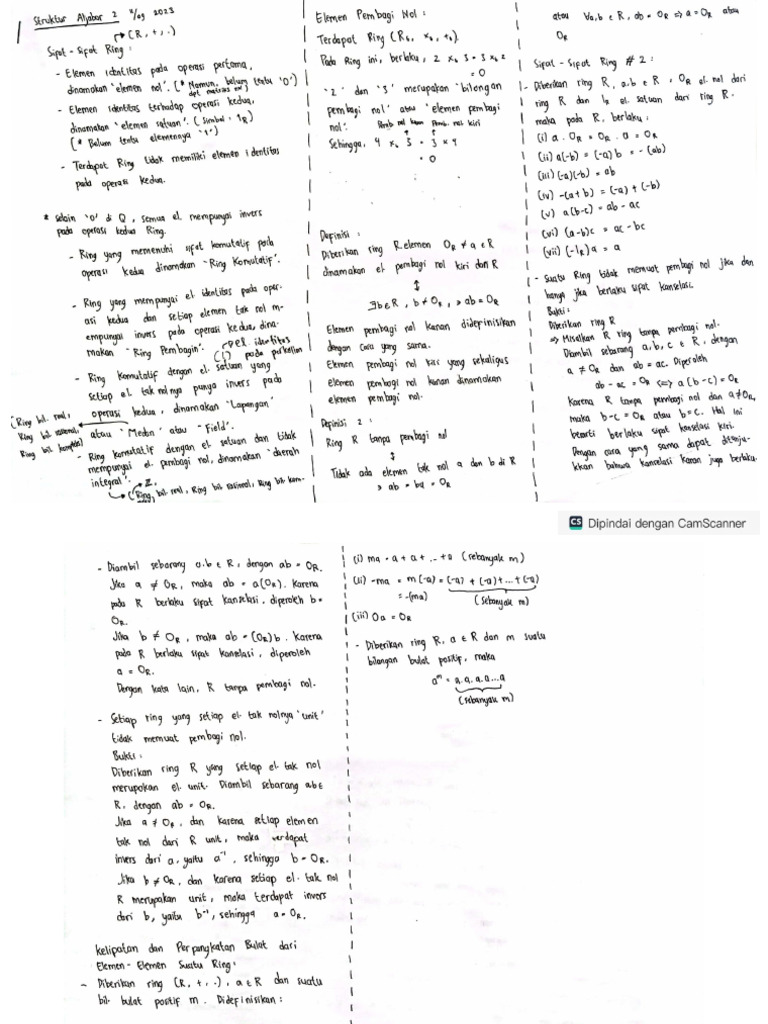 Struktur Aljabar 2 4/09 2023
(R, +, .)
Sifat-Sifat Ring :
- Elemen identitas pada operasi pertama,
dinamakan 'elemen nol'. (* Namun, belum tentu '0')
- Elemen identitas terhadap operasi kedua,
dinamakan 'elemen satuan'. (Simbol : 1R)
(* Belum tentu elemennya '1')
- Terdapat Ring tidak memiliki elemen identitas
pada operasi kedua.
* selain '0' di Q, semua el. mempunyai invers
pada operasi kedua Ring.
- Ring yang memenuhi sifat komutatif pada
operasi kedua dinamakan 'Ring Komutatif'.
- Ring yang mempunyai el identitas pada oper-
asi kedua dan setiap elemen tak nol m-
empunyai invers pada operasi kedua, dina-
makan 'Ring Pembagin'.
el. identitas
(1) pada perkalian
- Ring komutatif dengan el. satuan yang
setiap el. tak nolnya punya invers pada
operasi kedua, dinamakan 'Lapangan'
atau 'Medan' atau 'Field'.
(Ring bil. real,
Ring bil rasional,
Ring bil. kompleks)
- Ring komutatif dengan el satuan dan tidak
mempunyai el. pembagi nol, dinamakan 'daerah
integral'.
(Ring Z, bil. real, Ring bil rasional, Ring bil. kom-
Elemen Pembagi Nol :
Terdapat Ring (R6, x6, +6).
Pada Ring ini, berlaku, 2 x6 3 = 3 x6 2
= 0
'2' dan '3' merupakan 'bilangan
pembagi nol' atau 'elemen pembagi
nol'.
Pemb nol kanan Pemb. nol kiri
Sehingga, 4 x6 3 = 3 x 4
= 0
Definisi :
Diberikan ring R. elemen 0R ≠ a ∈ R
dinamakan el. pembagi nol kiri dari R
⇕
∃b∈R, b ≠ 0R, ∋ ab = 0R
Elemen pembagi nol kanan didefinisikan
dengan cara yang sama.
Elemen pembagi nol kiri yang sekaligus
elemen pembagi nol kanan dinamakan
elemen pembagi nol.
Definisi 2 :
Ring R tanpa pembagi nol
⇕
Tidak ada elemen tak nol a dan b di R
∋ ab = ba = 0R
atau ∀a,b ∈ R, ab = 0R ⇒ a = 0R atau
0R
Sifat-Sifat Ring #2 :
- Diberikan ring R, a,b ∈ R, 0R el. nol dari
ring R dan 1R el. satuan dari ring R.
maka pada R, berlaku :
(i) a . 0R = 0R . a = 0R
(ii) a(-b) = (-a)b = -(ab)
(iii) (-a)(-b) = ab
(iv) -(a+b) = (-a) + (-b)
(v) a(b-c) = ab - ac
(vi) (a-b)c = ac - bc
(vii) (-1R)a = a
- Suatu Ring tidak memuat pembagi nol jika dan
hanya jika berlaku sifat kanselasi.
Bukti :
Diberikan ring R
=> Misalkan R ring tanpa pembagi nol.
Diambil sebarang a, b, c ∈ R, dengan
a ≠ 0R dan ab = ac. Diperoleh
ab - ac = 0R <=> a(b-c) = 0R
Karena R tanpa pembagi nol dan a≠0R,
maka b-c = 0R atau b=c. Hal ini
berarti berlaku sifat kanselasi kiri.
Dengan cara yang sama dapat ditunju-
kkan bahwa kanselasi kanan juga berlaku.
CS Dipindai dengan CamScanner
- Diambil sebarang a.b ∈ R, dengan ab = 0R.
Jika a ≠ 0R, maka ab = a(0R). Karena
pada R berlaku sifat kanselasi, diperoleh b =
0R.
Jika b ≠ 0R, maka ab = (0R)b. Karena
pada R berlaku sifat kanselasi, diperoleh
a = 0R.
Dengan kata lain, R tanpa pembagi nol.
- Setiap ring yang setiap el. tak nolnya 'unit'
tidak memuat pembagi nol.
Bukti :
Diberikan ring R yang setiap el. tak nol
merupakan el. unit. Diambil sebarang a,b∈
R, dengan ab = 0R.
Jika a ≠ 0R, dan karena setiap elemen
tak nol dari R unit, maka terdapat
invers dari a, yaitu a⁻¹, sehingga b = 0R.
Jika b ≠ 0R, dan karena setiap el. tak nol
R merupakan unit, maka terdapat invers
dari b, yaitu b⁻¹, sehingga a = 0R.
Kelipatan dan Perpangkatan Bulat dari
Elemen-Elemen Suatu Ring :
- Diberikan ring (R, +, .), a ∈ R dan suatu
bil. bulat positif m. Didefinisikan :
(i) ma = a + a + ... + a (sebanyak m)
(ii) -ma = m(-a) = (-a) + (-a) + ... + (-a)
= -(ma) (sebanyak m)
(iii) 0a = 0R
- Diberikan ring R, a ∈ R dan m suatu
bilangan bulat positif, maka
aᵐ = a.a.a.a...a
(sebanyak m)